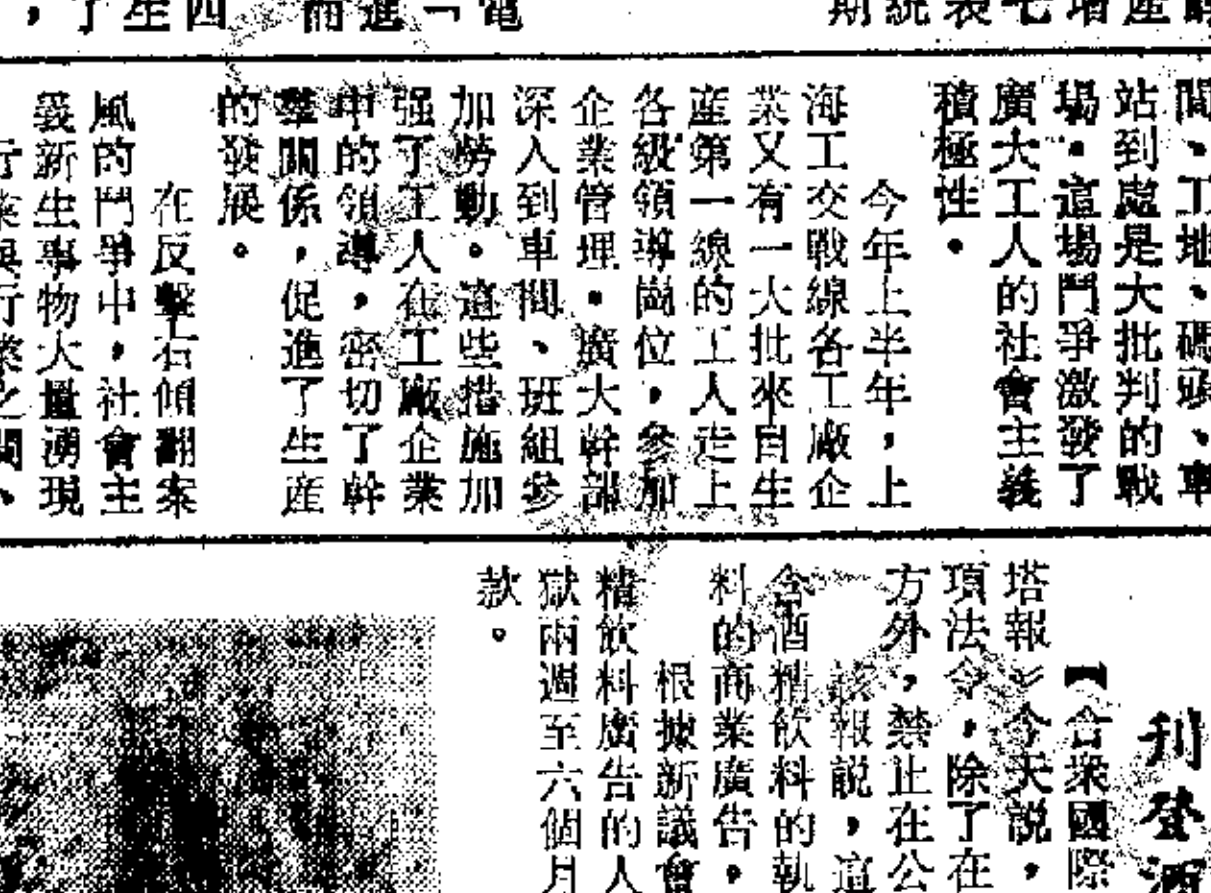 間、工地、碼頭、車
站到處是大批判的戰
場。這場鬥爭激發了
廣大工人的社會主義
積極性。
今年上半年，上
海工交戰線各工廠企
業又有一大批來自生
產第一線的工人走上
各級領導崗位，參加
企業管理。廣大幹部
深入到車間、班組參
加勞動。這些措施加
强了工人在工廠企業
中的領導，密切了幹
羣關係，促進了生產
的發展。
在反擊右傾翻案
風的鬥爭中，社會主
義新生事物大量湧現
行業與行業之間、
刊登酒
【合衆國際
塔報》今天説，
項法令，除了在
方外，禁止在公
該報説，這
含酒精飲料的執
料的商業廣告。
根據新議會
精飲料廣告的人
獄兩週至六個月
款。